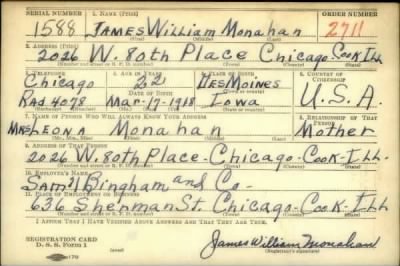 SERIAL NUMBER 1. NAME (Print) ORDER NUMBER
1588 JAMES William Monahan 2711
(First) (Middle) (Last)
2. ADDRESS (Print)
2026 W. 80th Place Chicago-Cook Ill
(Number and street or R. F. D. number) (Town) (County) (State)
3. TELEPHONE 4. AGE IN YEARS 5. PLACE OF BIRTH 6. COUNTRY OF CITIZENSHIP
Chicago 22 DesMoines
DATE OF BIRTH
Rad 4098 Mar-17-1918 Iowa U.S.A.
7. NAME OF PERSON WHO WILL ALWAYS KNOW YOUR ADDRESS 8. RELATIONSHIP OF THAT PERSON
Mrs Leona Monahan Mother
(Mr., Mrs., Miss) (First) (Middle) (Last)
9. ADDRESS OF THAT PERSON
2026 W. 80th Place-Chicago-Cook-Ill.
(Number and street or R. F. D. number) (Town) (County) (State)
10. EMPLOYER'S NAME
Sam'l Bingham and Co-
11. PLACE OF EMPLOYMENT OR BUSINESS
636 Sherman St. Chicago-Cook-Ill
(Number and street or R. F. D. number) (Town) (County) (State)
I AFFIRM THAT I HAVE VERIFIED ABOVE ANSWERS AND THAT THEY ARE TRUE.
REGISTRATION CARD
D. S. S. Form 1
James William Monahan
(Registrant's signature)